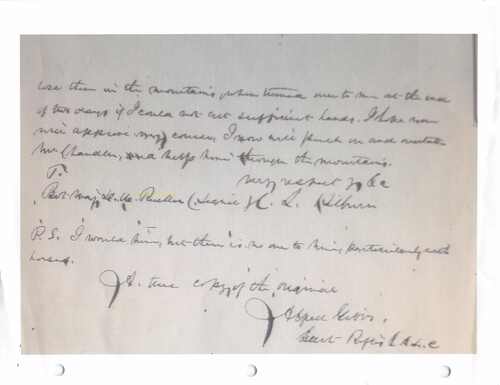 use them in the mountains, when turned over to me at the end
of two days if I could not get sufficient hands. I hope you
will approve my course, I now will push on and overtake
Mr Chandler, and help him through the mountains.
very respectfully &c
To
Bvt. Maj.
P.S. I would hire, but there is no one to hire, particularly with
horses.
A true copy of the original
Alfred Gibbs.
Lieut